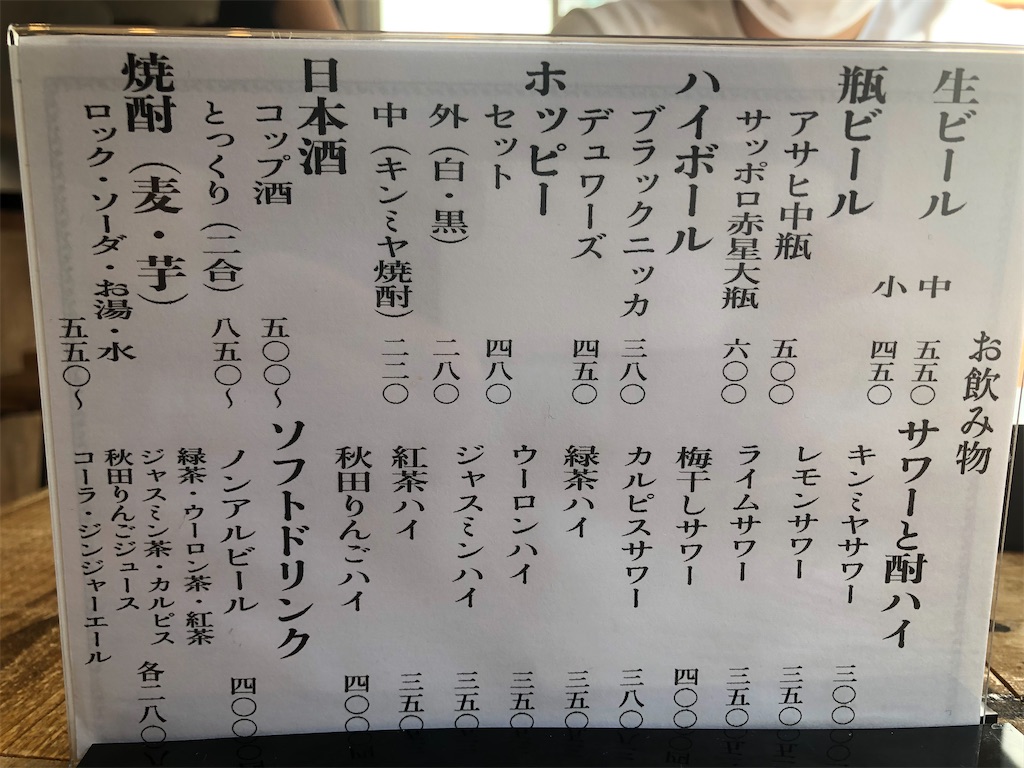 お飲み物
生ビール
中 五五〇
小 四五〇
瓶ビール
アサヒ中瓶 五〇〇
サッポロ赤星大瓶 六〇〇
ハイボール
ブラックニッカ 三八〇
デュワーズ 四五〇
ホッピー
セット 四八〇
外（白・黒） 二八〇
中（キンミヤ焼酎） 二二〇
日本酒
コップ酒 五〇〇〜
とっくり（二合） 八五〇〜
焼酎（麦・芋）
ロック・ソーダ・お湯・水 五五〇〜
サワーと酎ハイ
キンミヤサワー 三〇〇
レモンサワー 三五〇
ライムサワー 三五〇
梅干しサワー 四〇〇
カルピスサワー 三八〇
緑茶ハイ 三五〇
ウーロンハイ 三五〇
ジャスミンハイ 三五〇
紅茶ハイ 三五〇
秋田りんごハイ 四〇〇
ソフトドリンク
ノンアルビール 四〇〇
緑茶・ウーロン茶・紅茶
ジャスミン茶・カルピス 各二八〇
秋田りんごジュース
コーラ・ジンジャーエール